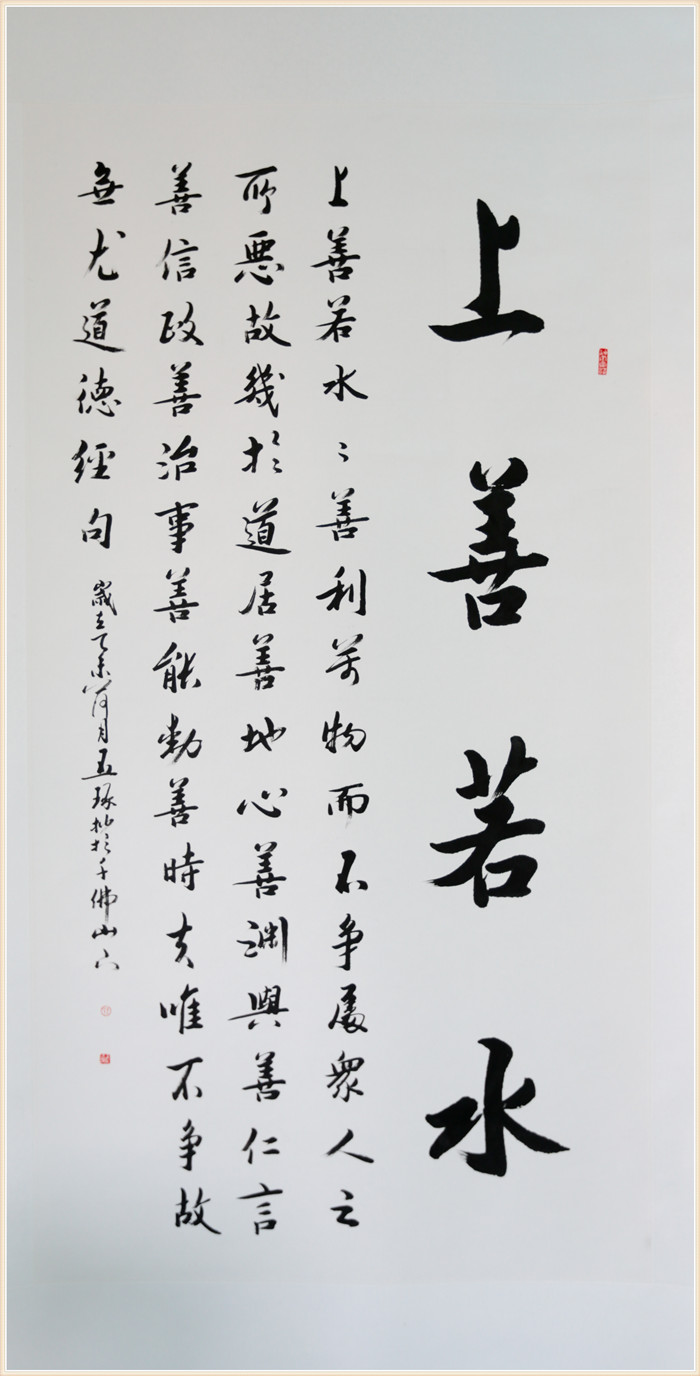 上善若水
上善若水〻善利万物而不争處衆人之
所惡故幾於道居善地心善渊與善仁言
善信政善治事善能動善時夫唯不争故
無尤道德經句
歲在乙未荷月五琢於千佛山下